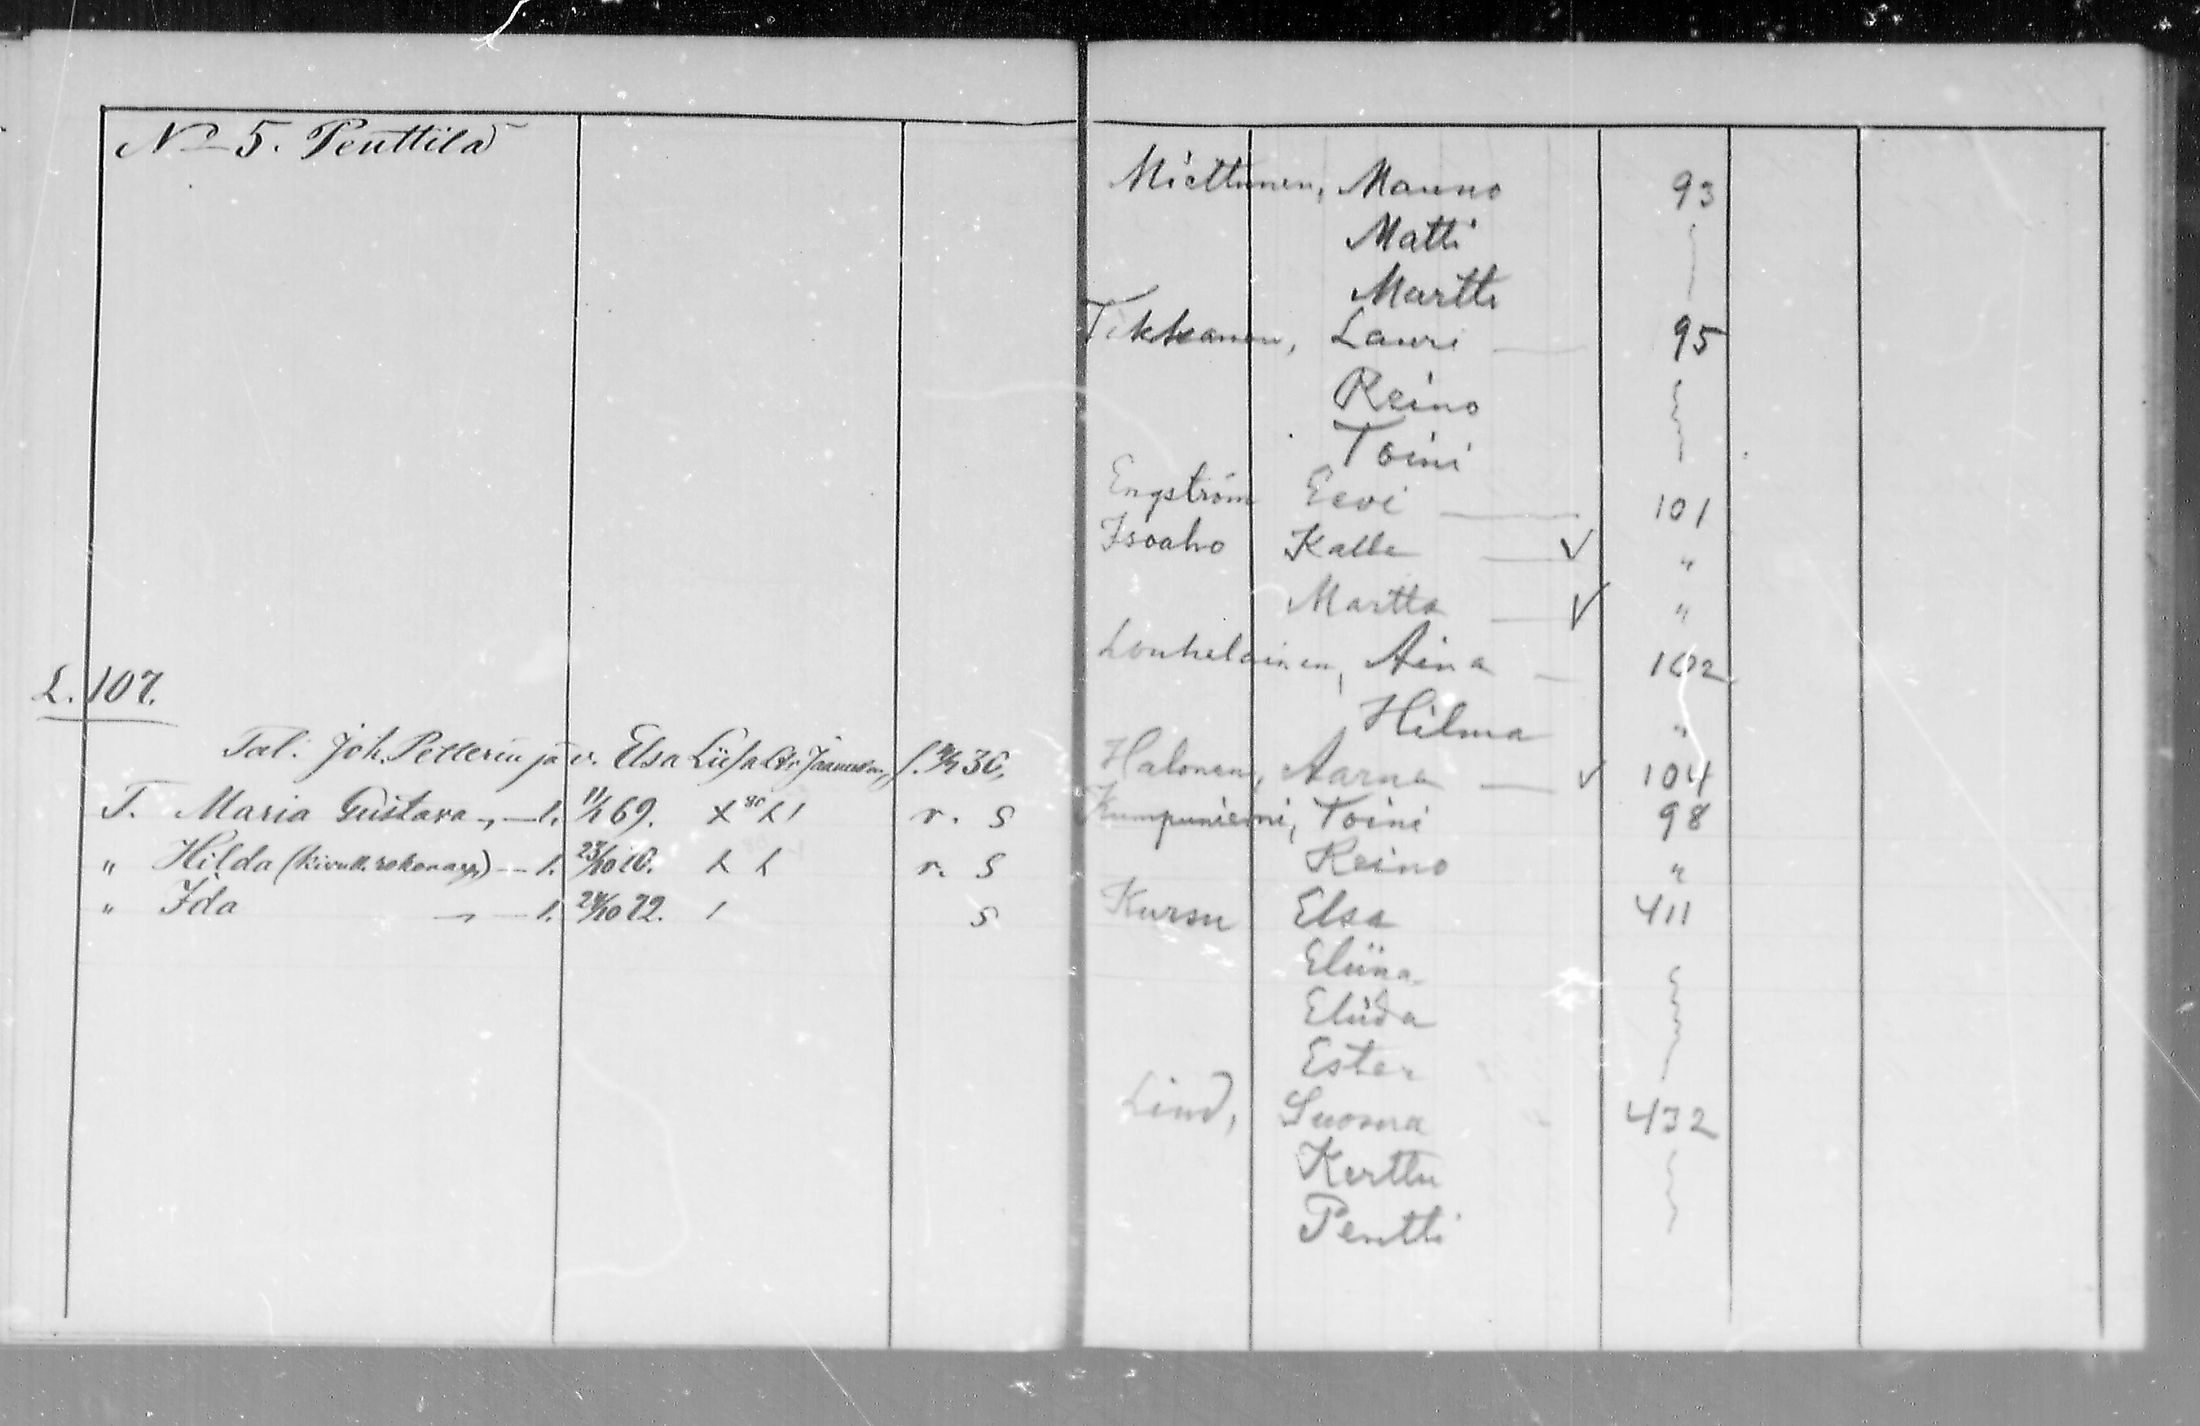 No 5. Penttilä
L. 107.
Tal. Joh. Pellerin ja v. Elsa Liisa
T. Maria Gustava 11/1 69. r. S
" Hilda 10. r. S
" Ida 72. S
Miettunen, Mauno 93
Matti
Martti
Tikkanen, Lauri 95
Reino
Toini
Engström Eevi 101
Isoaho Kalle √ "
Martta √ "
Louhelainen, Aina 102
Hilma "
Halonen, Aarne √ 104
Kumpuniemi, Toini 98
Reino "
Kursu Elsa 411
Eliina
Eliida
Ester
Lind, Suoma 432
Kerttu
Pentti